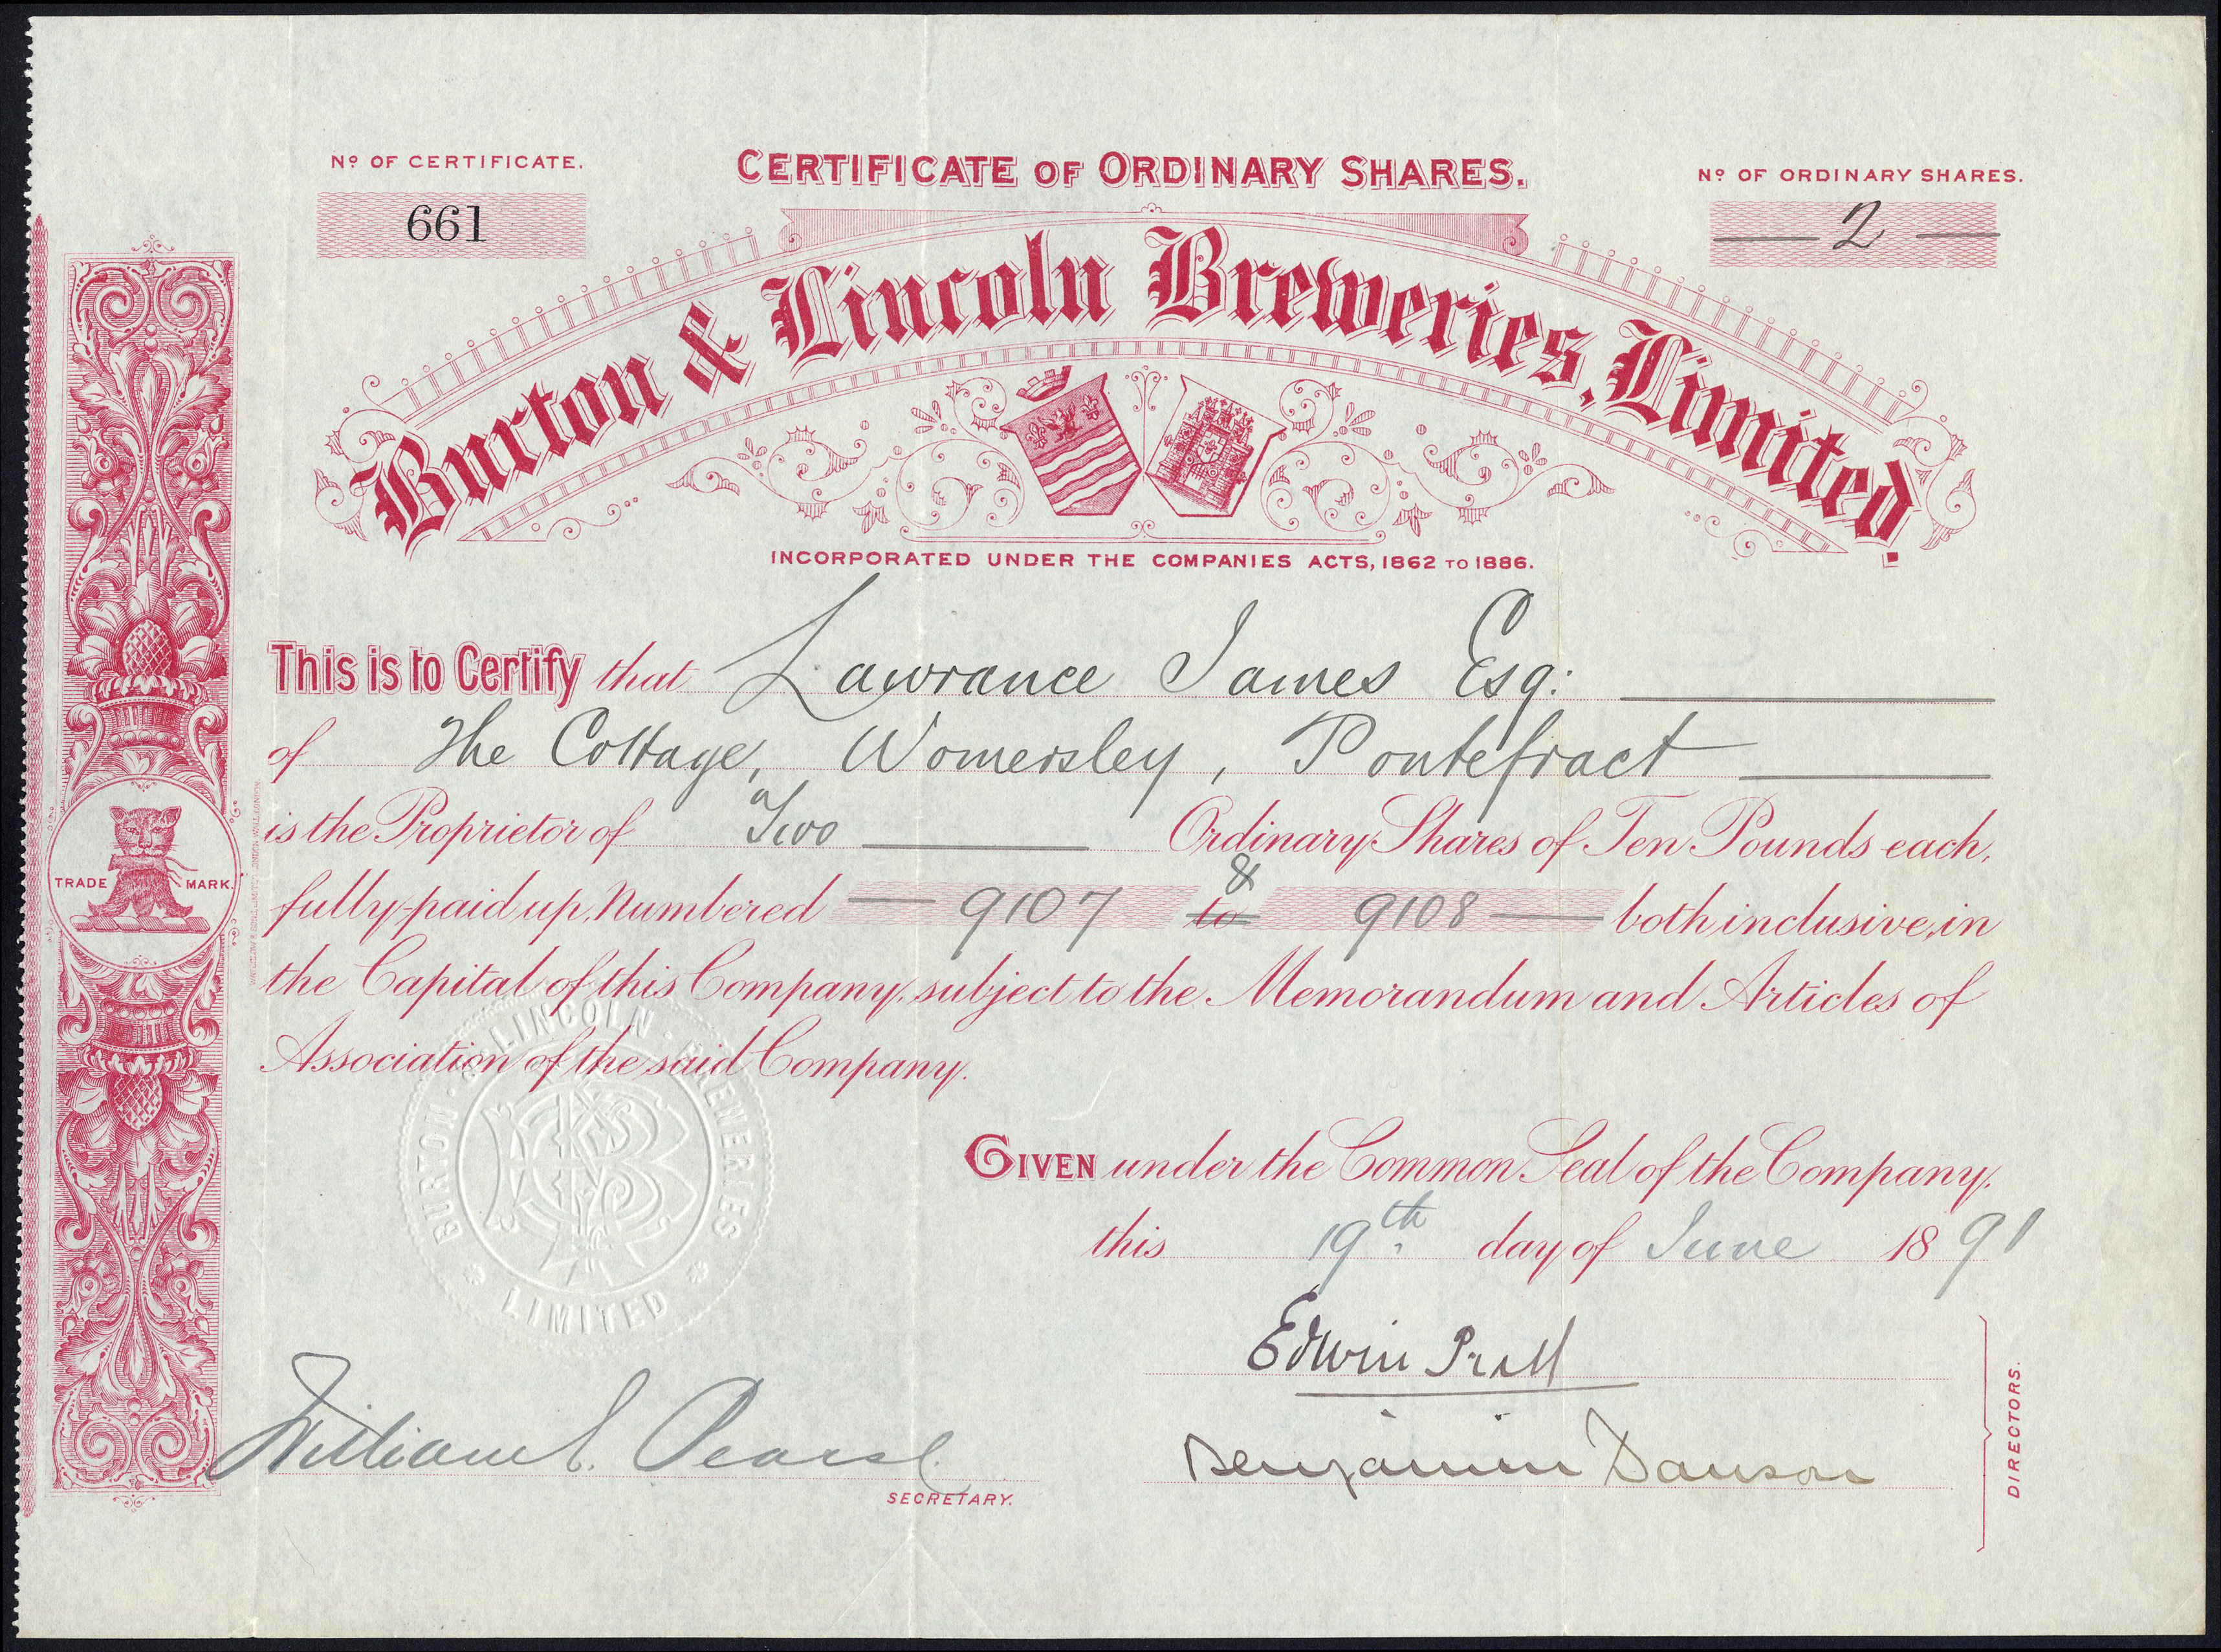 Nº OF CERTIFICATE.
661
CERTIFICATE OF ORDINARY SHARES.
Nº OF ORDINARY SHARES.
2
Burton & Lincoln Breweries, Limited.
INCORPORATED UNDER THE COMPANIES ACTS, 1862 TO 1886.
This is to Certify that Lawrance James Esq:
of The Cottage, Womersley, Pontefract
is the Proprietor of Two Ordinary Shares of Ten Pounds each,
fully-paid up, Numbered 9107 to & 9108 both inclusive, in
the Capital of this Company, subject to the Memorandum and Articles of
Association of the said Company.
TRADE MARK.
BURTON & LINCOLN BREWERIES
LIMITED
GIVEN under the Common Seal of the Company,
this 19th day of June 1891
Edwin
Benjamin Dawson
DIRECTORS.
William Pearse
SECRETARY.